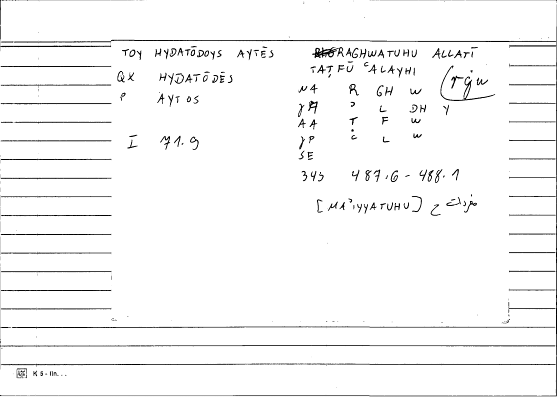 TOY HYDATŌDOYS AYTĒS
QX HYDATŌDĒS
P AYTOS
I 71.9
RAGHWATUHU ALLATĪ
TAṬFŪ ʿALAYHI
rġw
NA R GH W
ʾ L DH Y
AA Ṭ F W
γP ʿ L W
SE
345 487.6 - 488.1
[MAʾIYYATUHU]
K 5 - lin...